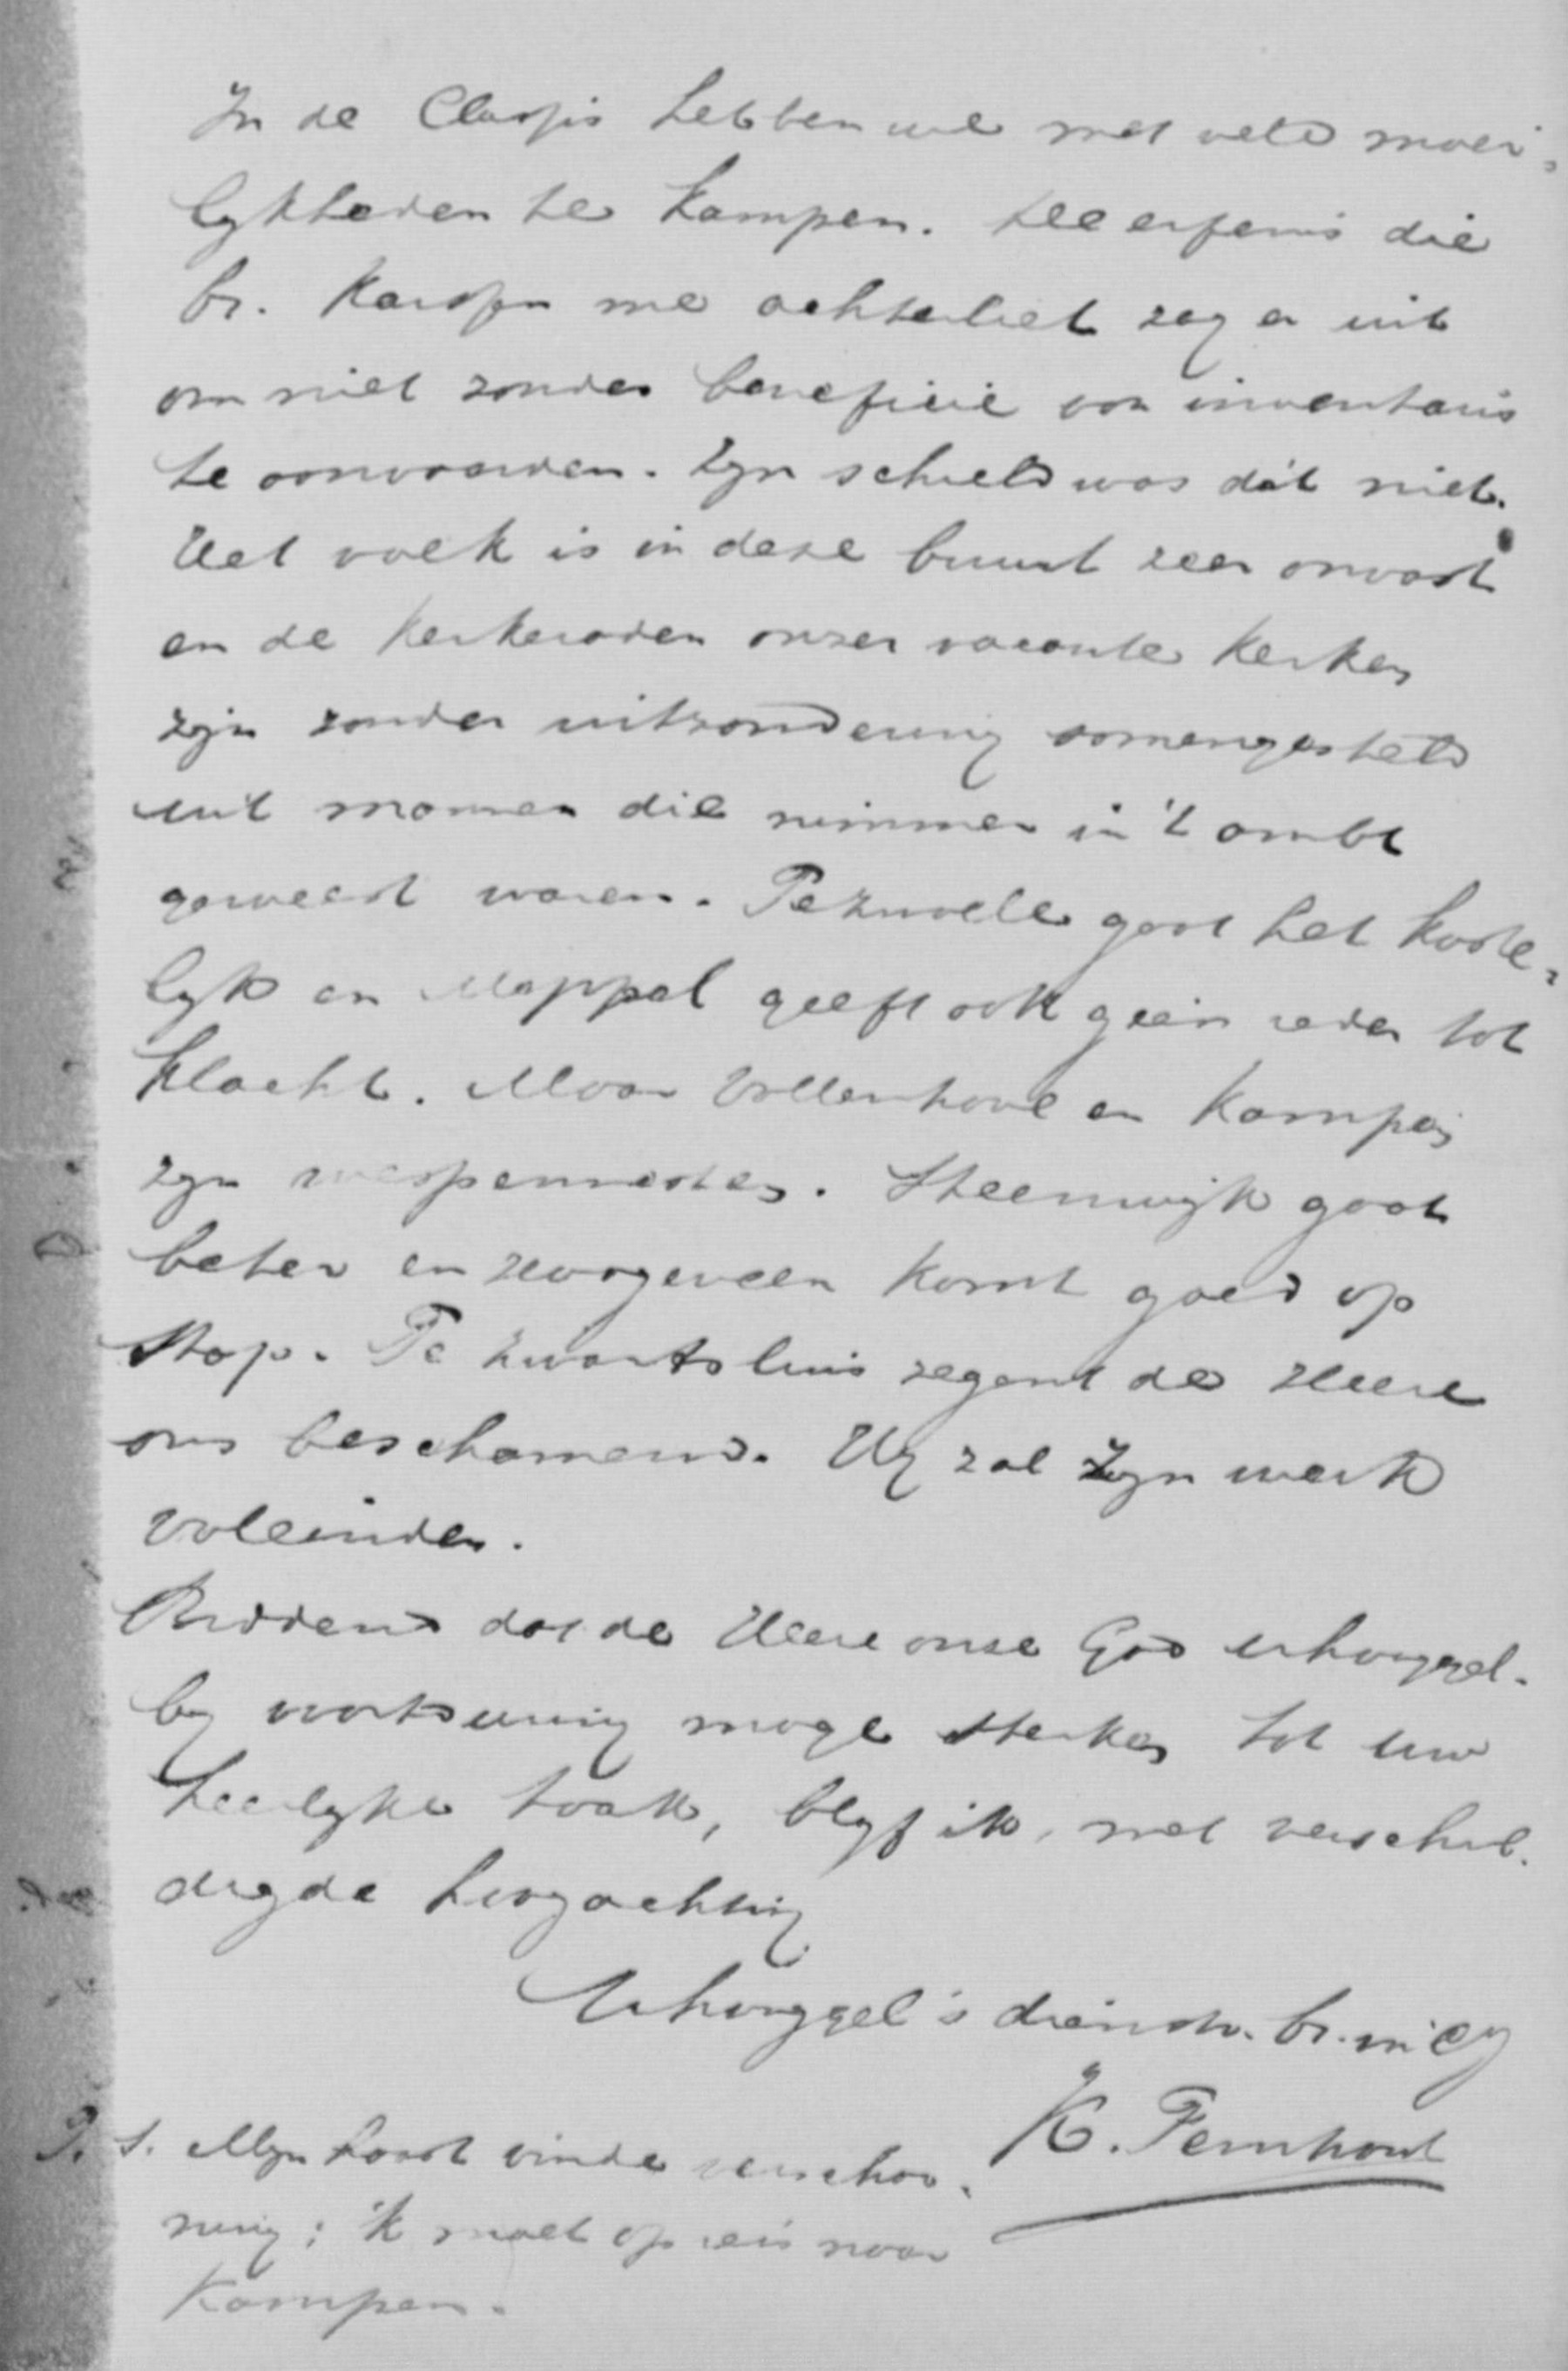 In de Classis hebben we met vele moei-
lykheden te kampen. De erfenis die
br. Karssen me achterliet zag er uit
om niet zonder beneficie van inventaris
te aanvaarden. Zyn schuld was dát niet.
Het volk is in deze buurt zeer onvast
en de kerkeraden onzer vacante kerken
zijn zonder uitzondering samengesteld
uit mannen die nimmer in 't ambt
geweest waren. Te Zwolle gaat het koste-
lyk en Meppel geeft ook geen reden tot
klacht. Maar Vollenhove en Kampen
zyn wespennesten. Steenwijk gaat
beter en Hoogeveen komt goed op
stap. Te Zwartsluis zegent de Heere
ons beschamend. Hy zal Zyn werk
voleinden.
Biddend dat de Heere onze God uhooggel.
by voortduring moge sterken tot uw
heerlyke taak, blyf ik, met verschul-
digde hoogachting
Uhooggel's dienstv. br. in C.
K. Fernhout
P.S. Myn haast vinde verschoo-
ning; 'k moet op reis naar
Kampen.